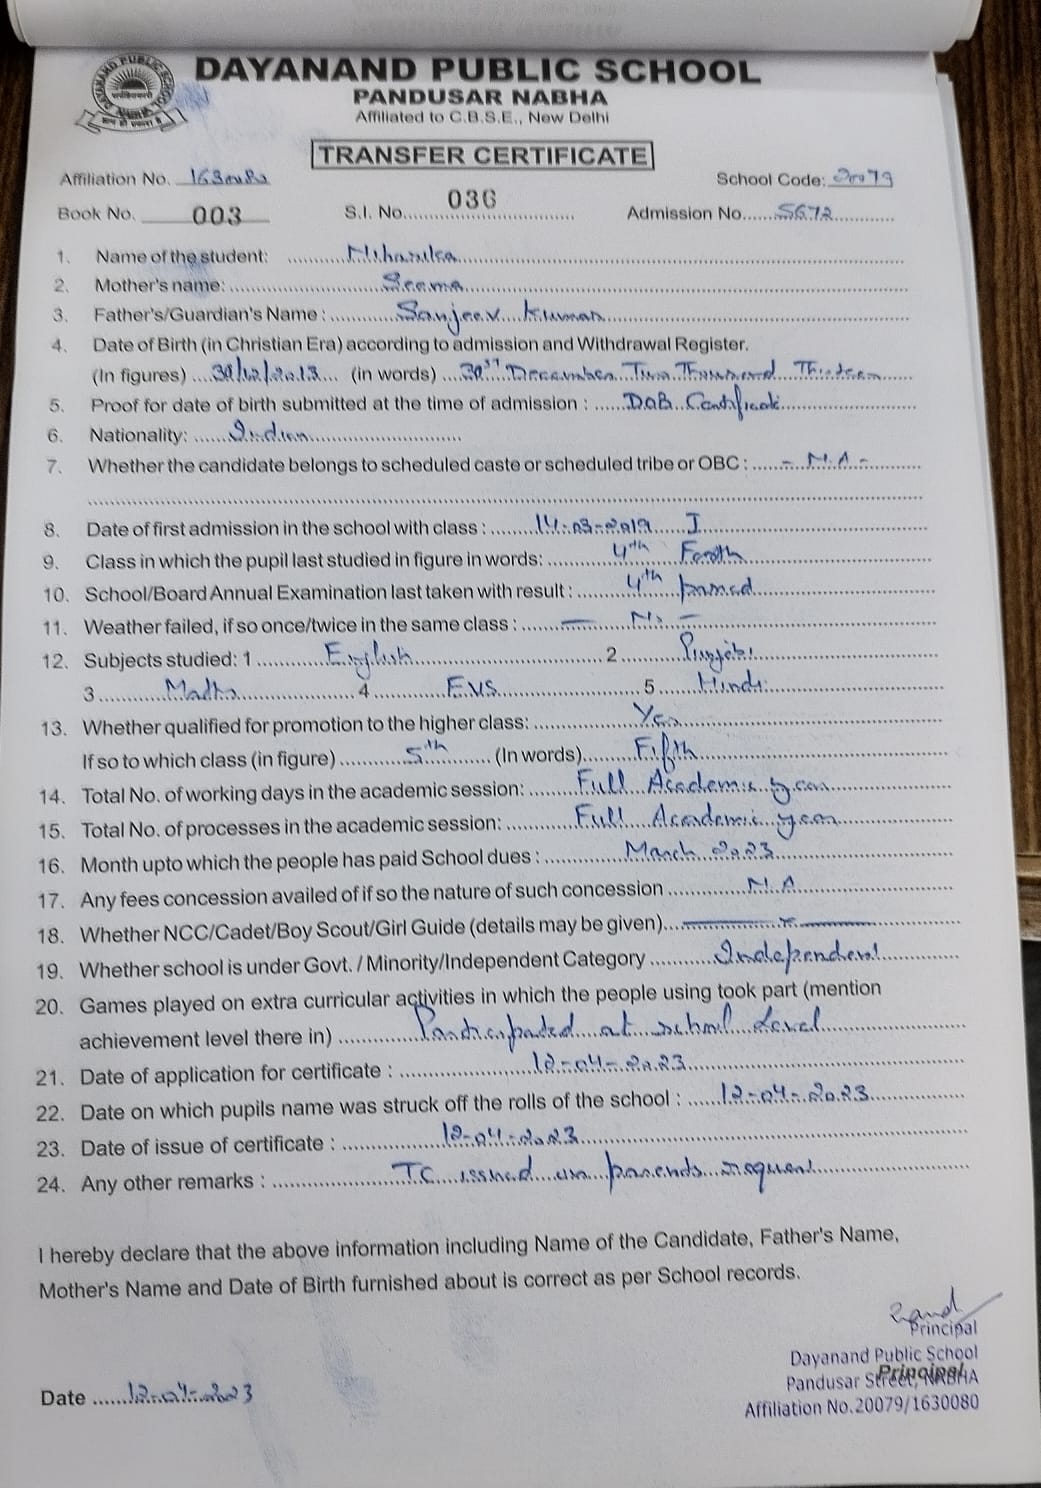 DAYANAND PUBLIC SCHOOL
PANDUSAR NABHA
Affiliated to C.B.S.E., New Delhi
TRANSFER CERTIFICATE
Affiliation No. 1630080 School Code: 20079
Book No. 003 S.I. No. 036 Admission No. 5672
1. Name of the student: Niharika
2. Mother's name: Seema
3. Father's/Guardian's Name : Sanjeev Kumar
4. Date of Birth (in Christian Era) according to admission and Withdrawal Register.
(In figures) 30/12/2013 (in words) 30th December Two Thousand Thirteen
5. Proof for date of birth submitted at the time of admission : DOB Certificate
6. Nationality: Indian
7. Whether the candidate belongs to scheduled caste or scheduled tribe or OBC : - N.A -
8. Date of first admission in the school with class : 14-03-2019 I
9. Class in which the pupil last studied in figure in words: 4th Fourth
10. School/Board Annual Examination last taken with result : 4th passed
11. Weather failed, if so once/twice in the same class : — No —
12. Subjects studied: 1 English 2 Punjabi
3 Maths 4 EVS 5 Hindi
13. Whether qualified for promotion to the higher class: Yes
If so to which class (in figure) 5th (In words) Fifth
14. Total No. of working days in the academic session: Full Academic year
15. Total No. of processes in the academic session: Full Academic year
16. Month upto which the people has paid School dues : March 2023
17. Any fees concession availed of if so the nature of such concession N.A
18. Whether NCC/Cadet/Boy Scout/Girl Guide (details may be given)
19. Whether school is under Govt. / Minority/Independent Category Independent
20. Games played on extra curricular activities in which the people using took part (mention
achievement level there in) Participated at school Level
21. Date of application for certificate : 12-04-2023
22. Date on which pupils name was struck off the rolls of the school : 12-04-2023
23. Date of issue of certificate : 12-04-2023
24. Any other remarks : TC issued on parents request
I hereby declare that the above information including Name of the Candidate, Father's Name,
Mother's Name and Date of Birth furnished about is correct as per School records.
Principal
Dayanand Public School
Principal
Pandusar Street, NABHA
Date 12-04-2023
Affiliation No.20079/1630080